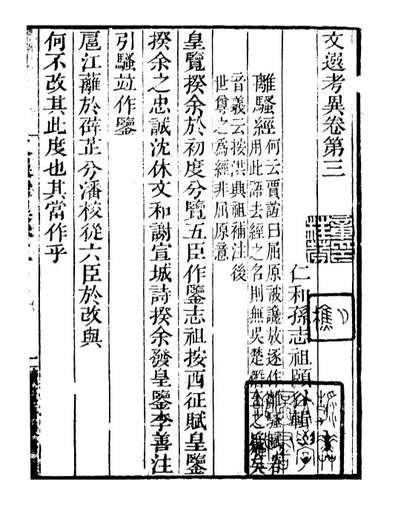 文選考異卷第三
仁和孫志祖頤谷輯
離騷經何云賈誼曰屈原被讒放逐作離騷賦
用此語去經之名則無吳楚僭
音義云按洪興祖補注後
世尊之爲經非屈原意
皇覽揆余於初度兮覽五臣作鑒志祖按西征賦皇鑒
揆余之忠誠沈休文和謝宣城詩揆余發皇鑒李善注
引騷竝作鑒
扈江蘺於薜芷兮潘校從六臣於改與
何不改其此度也其當作乎